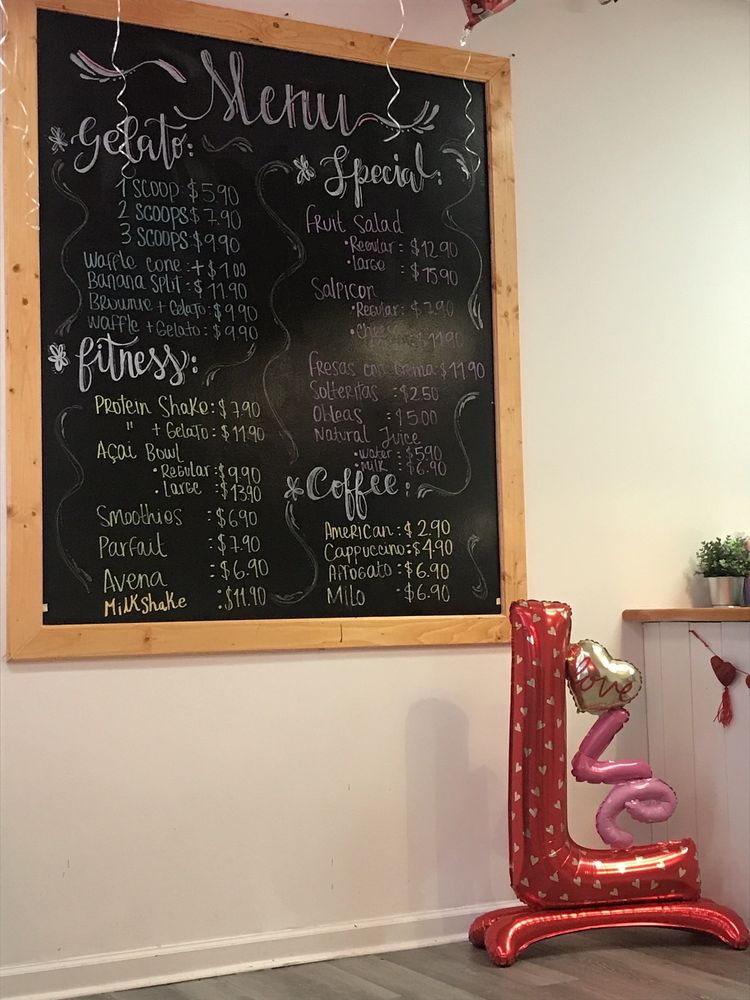 Menu
Gelato:
1 SCOOP: $5.90
2 SCOOPS $7.90
3 SCOOPS $9.90
Waffle cone: + $1.00
Banana Split: $11.90
Brownie + Gelato: $9.90
Waffle + Gelato: $9.90
fitness:
Protein Shake: $7.90
" + Gelato: $11.90
Açai Bowl
• Regular: $9.90
• Large : $13.90
Smoothies : $6.90
Parfait : $7.90
Avena : $6.90
Milkshake : $11.90
Special:
Fruit Salad
• Regular: $12.90
• Large : $15.90
Salpicon
• Regular: $7.90
• Cheese $11.90
Fresas con crema: $11.90
Solteritas : $2.50
Obleas : $5.00
Natural Juice
• water : $5.90
• Milk : $6.90
Coffee:
American: $2.90
Cappuccino: $4.90
Affogato : $6.90
Milo : $6.90
love
L